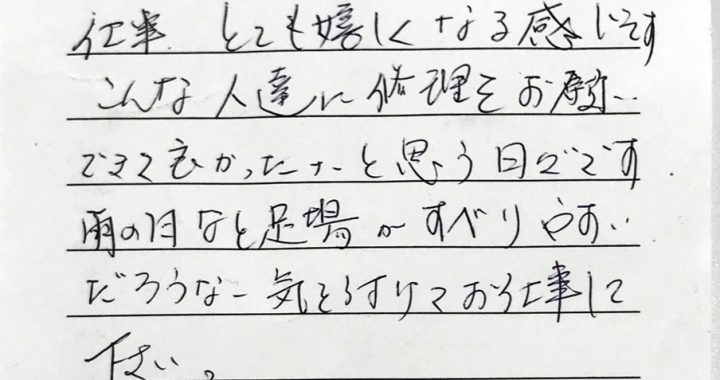 仕事、とても嬉しくなる感じです
こんな人達に修理をお願い
できて良かったナーと思う日々です
雨の日など足場がすべりやすい
だろうなー気を付けてお仕事して
下さい。